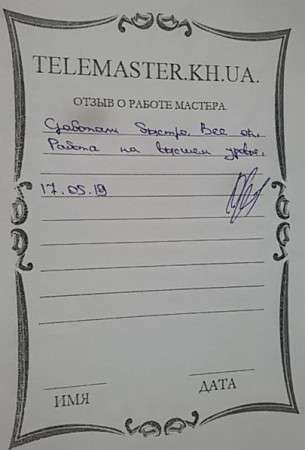 TELEMASTER.KH.UA.
ОТЗЫВ О РАБОТЕ МАСТЕРА
Сработали быстро. Все ок.
Работа на высшем уровне.
17.05.19
ИМЯ
ДАТА